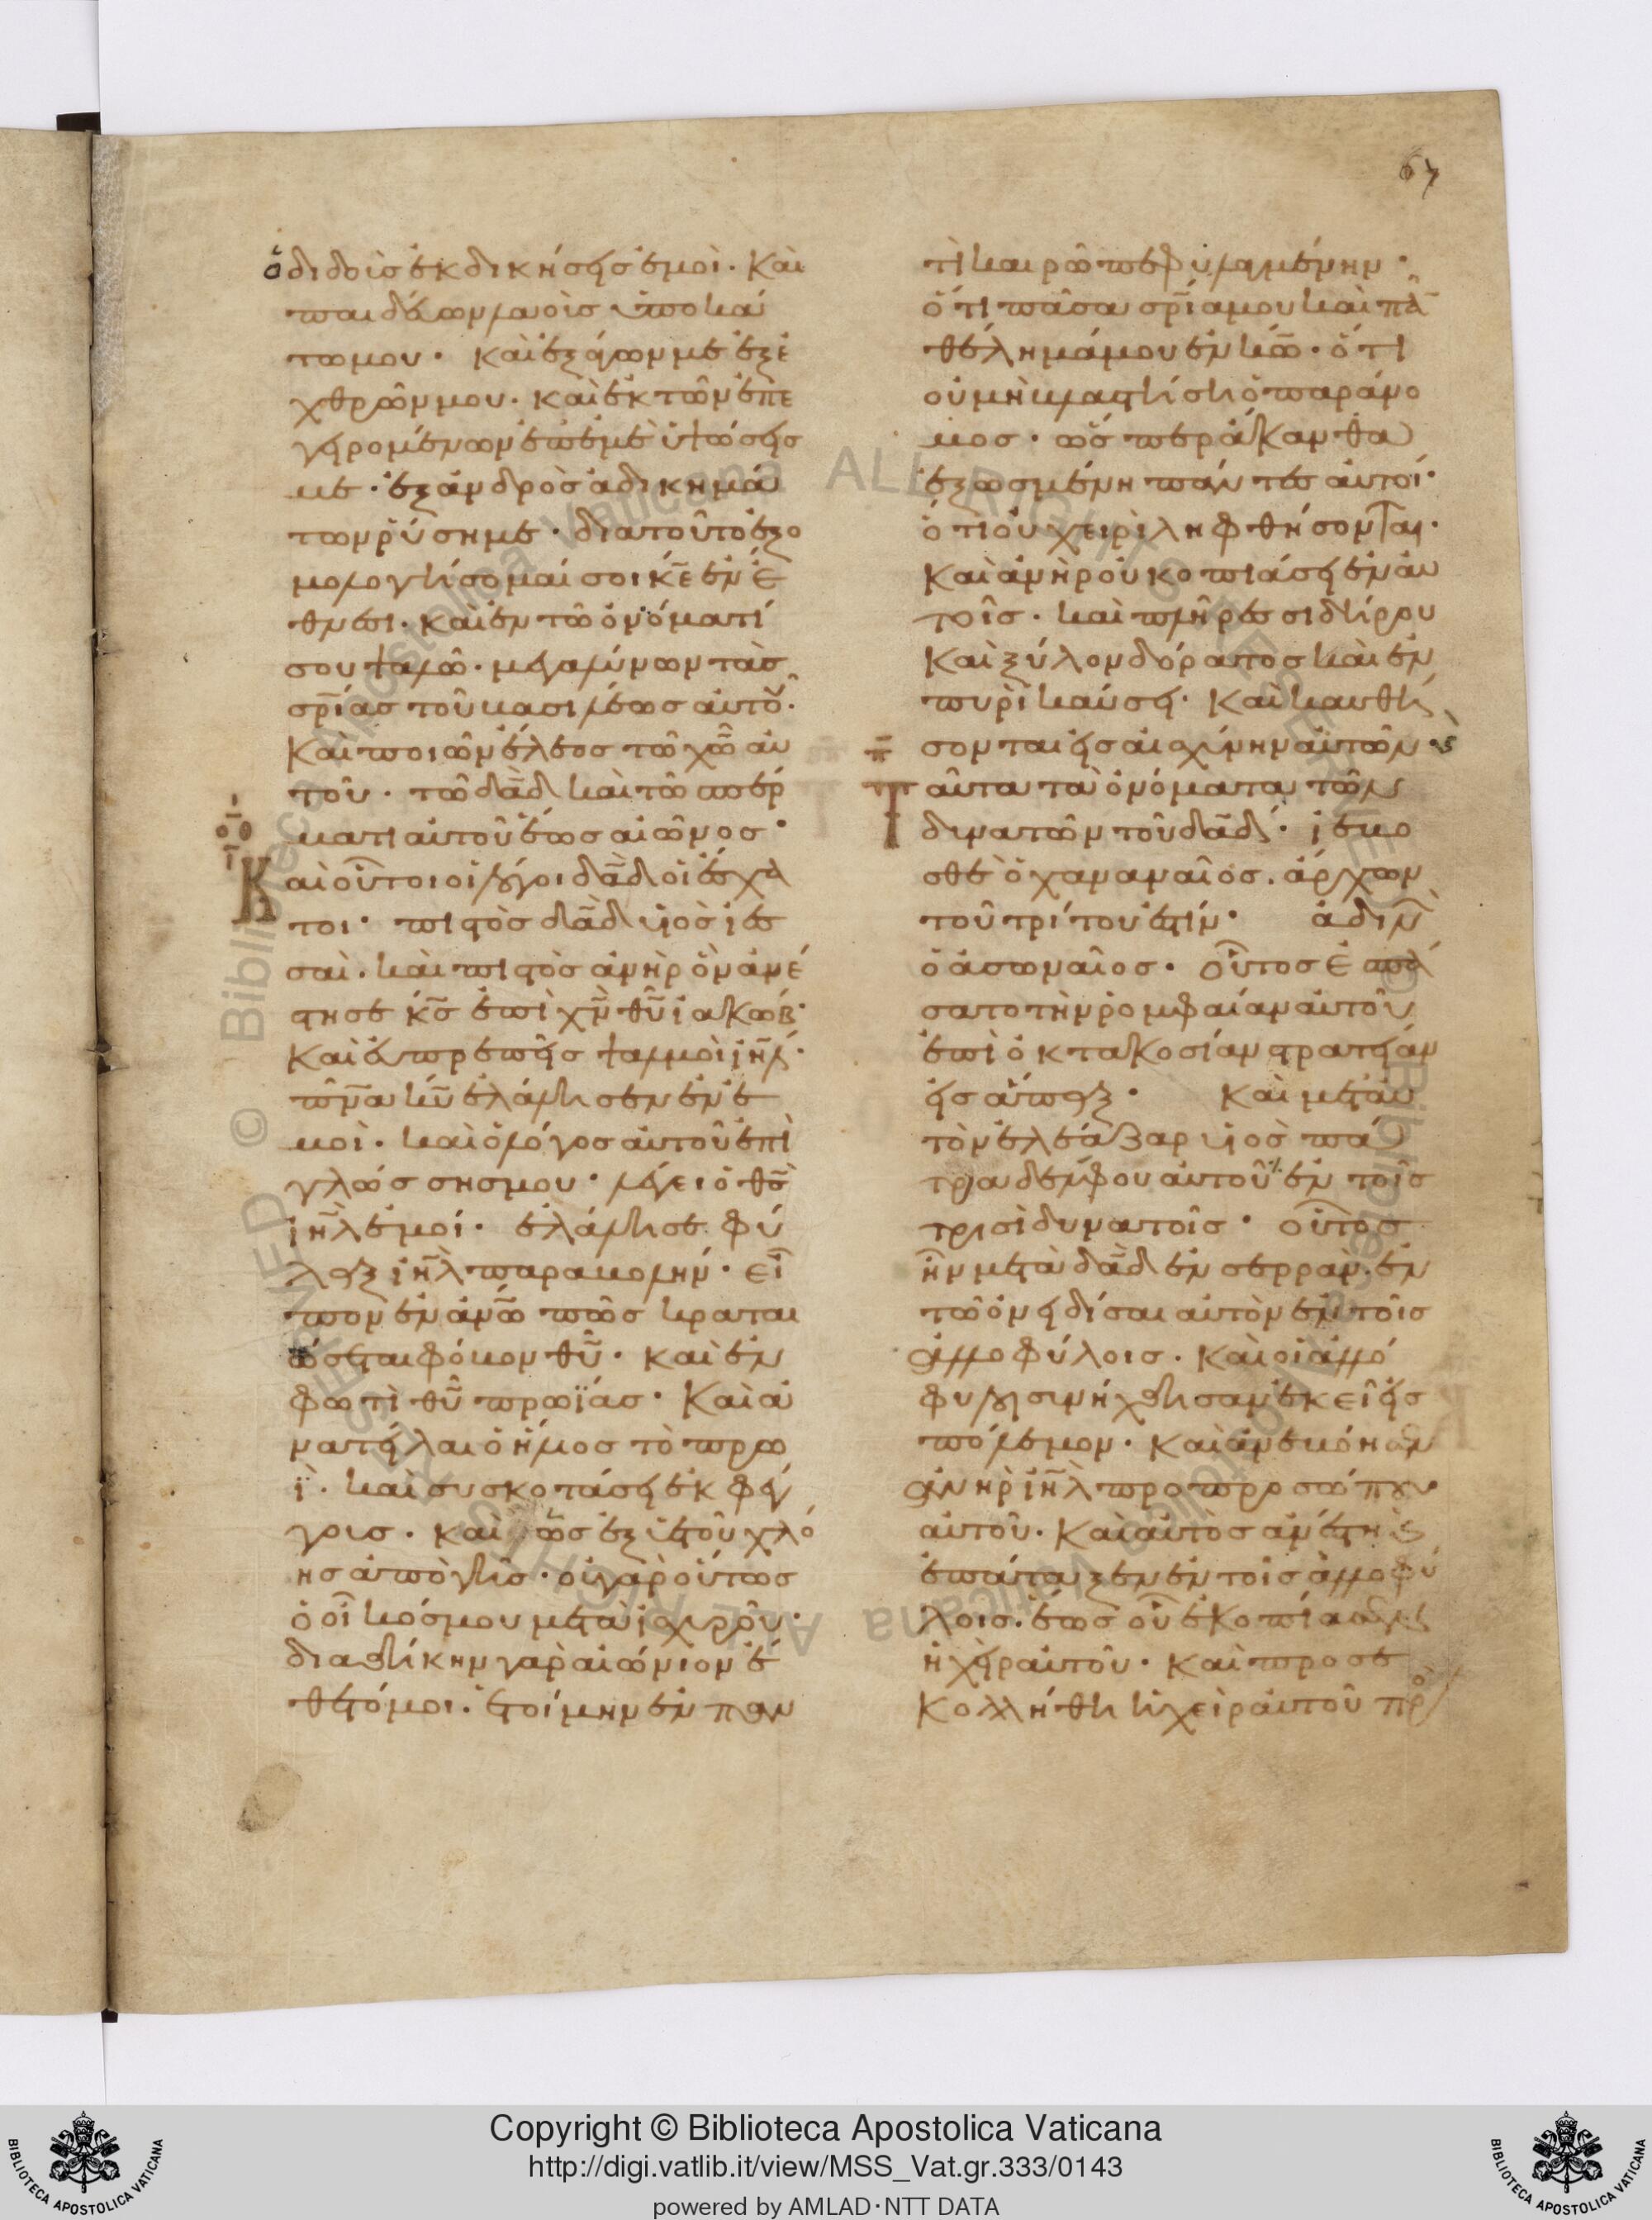 67
ὁ διδοὶσ ἐκδικήσεις ἐμοί· Καὶ
παιδεύων λαοὶσ ὑποκά
τω μου· καὶ ἐξάγων με ἐξ ἐ
χθρῶν μου· καὶ ἐκ τῶν ἐπε
γειρομένων ἐπ' ἐμὲ ὑψώσεις
με· ἐξ ἀνδρὸς ἀδικημά
των ῥύση με· διατοῦτο ἐξο
μολογήσομαί σοι κ̅ε̅ ἐν ἔ
θνεσι· καὶ ἐν τῶ ὀνόματί
σου ψαλῶ· μεγαλύνων τὰς
σρ̅ίας τοῦ βασιλέως αὐτοῦ·
Καὶ ποιῶν ἔλεος τῶ χ̅ω̅ αὐ
τοῦ· τῶ δα̅δ̅ καὶ τῶ σπέρ
ματι αὐτοῦ ἕως αἰῶνος·
Καὶ οὗτοι οἱ λόγοι δα̅δ̅ οἱ ἔσχα
τοι· πιστὸς δα̅δ̅ υἱὸς ἰεσ
σαί· καὶ πιστὸς ἀνὴρ ὃν ἀνέ
στησε κ̅ς̅ ἐπὶ χ̅ν̅ θ̅υ̅ ἰακώβ·
Καὶ εὐπρεπεῖς ψαλμοὶ ἰη̅λ̅·
π̅ν̅α̅ κ̅υ̅ ἐλάλησεν ἐν ἐ
μοί· καὶ ὁ λόγος αὐτοῦ ἐπὶ
γλώσσησ μου· λέγει ὁ θ̅ς̅
ἰη̅λ̅ ἐμοί· ἐλάλησε φύ
λαξ ἰη̅λ̅ παραβολήν· εἶ
πον ἐν ἀν̅ω̅ πῶς κραται
ώσεται φόβον θ̅υ̅· καὶ ἐν
φωτὶ θ̅υ̅ πρωΐας· Καὶ ἀ
νατείλαι ὁ ἥλιος τὸ πρω
ΐ· καὶ συσκοτάσει ἐκ φέγ
γοις· καὶ ὡς ἐξ ὑετοῦ χλό
ης ἀπὸ γῆς· οὐ γὰρ οὕτως
ὁ οἶκός μου μετὰ ἰσχυροῦ·
διαθήκην γὰρ αἰώνιον ἔ
θετό μοι· ἑτοίμην ἐν παν
τὶ καιρῶ πεφυλαγμένην·
ὅτι πᾶσα σρ̅ία μου καὶ πᾶν
θέλημά μου ἐν κ̅ω̅· ὅτι
οὐ μὴ βλαστήση ὁ παράνο
μος· ὥσπερ ἄκανθα
ἐξωσμένη πάντες αὐτοί·
ὅτι οὐ χειρὶ ληφθήσονται·
Καὶ ἀνὴρ οὐ κοπιάσει ἐν αὐ
τοῖς· καὶ πλῆρες σιδήρου
Καὶ ξύλον δόρατος καὶ ἐν
πυρὶ καύσει· Καὶ καυθή
σονται εἰς αἰσχύνην αὐτῶν·
Ταῦτα τὰ ὀνόματα τῶν
δυνατῶν τοῦ δα̅δ̅· ἰεβο
σθὲ ὁ χαναναῖος· ἄρχων
τοῦ τρίτου ἐστίν· ἀδιν
ὁ ἀσωναῖος· οὗτος ἐσπά
σατο τὴν ῥομφαίαν αὐτοῦ
ἐπὶ ὀκτακοσίαν στρατείαν
εἰσάπαξ· Καὶ μετ' αὐ
τὸν ἐλεάζαρ υἱὸς πα
τραδέλφου αὐτοῦ ἐν τοῖς
τρισὶ δυνατοῖς· οὗτος
ἦν μετὰ δα̅δ̅ ἐν σερράν· ἐν
τῶ ὀνειδίσαι αὐτὸν ἐν τοῖς
ἀλλοφύλοις· Καὶ οἱ ἀλλό
φυλοι συνήχθησαν ἐκεῖ εἰς
πόλεμον· Καὶ ἀνεβόησαν
ἀνὴρ ἰη̅λ̅ προ προσώπου
αὐτοῦ· Καὶ αὐτὸς ἀνέστη κ
ἐπάταξεν ἐν τοῖς ἀλλοφύ
λοις· ἕως οὗ ἐκοπίασεν
ἡ χεὶρ αὐτοῦ· Καὶ προσε
Κολλήθη ἡ χεὶρ αὐτοῦ πρὸς
Copyright © Biblioteca Apostolica Vaticana
http://digi.vatlib.it/view/MSS_Vat.gr.333/0143
powered by AMLAD·NTT DATA